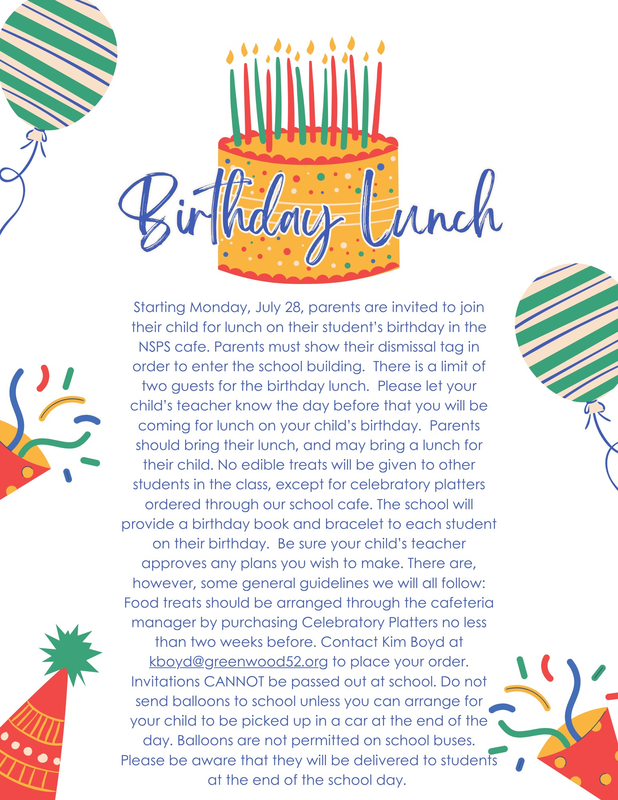 Birthday Lunch
Starting Monday, July 28, parents are invited to join
their child for lunch on their student's birthday in the
NSPS cafe. Parents must show their dismissal tag in
order to enter the school building.  There is a limit of
two guests for the birthday lunch.  Please let your
child's teacher know the day before that you will be
coming for lunch on your child's birthday.  Parents
should bring their lunch, and may bring a lunch for
their child. No edible treats will be given to other
students in the class, except for celebratory platters
ordered through our school cafe. The school will
provide a birthday book and bracelet to each student
on their birthday.  Be sure your child's teacher
approves any plans you wish to make. There are,
however, some general guidelines we will all follow:
Food treats should be arranged through the cafeteria
manager by purchasing Celebratory Platters no less
than two weeks before. Contact Kim Boyd at
kboyd@greenwood52.org to place your order.
Invitations CANNOT be passed out at school. Do not
send balloons to school unless you can arrange for
your child to be picked up in a car at the end of the
day. Balloons are not permitted on school buses.
Please be aware that they will be delivered to students
at the end of the school day.